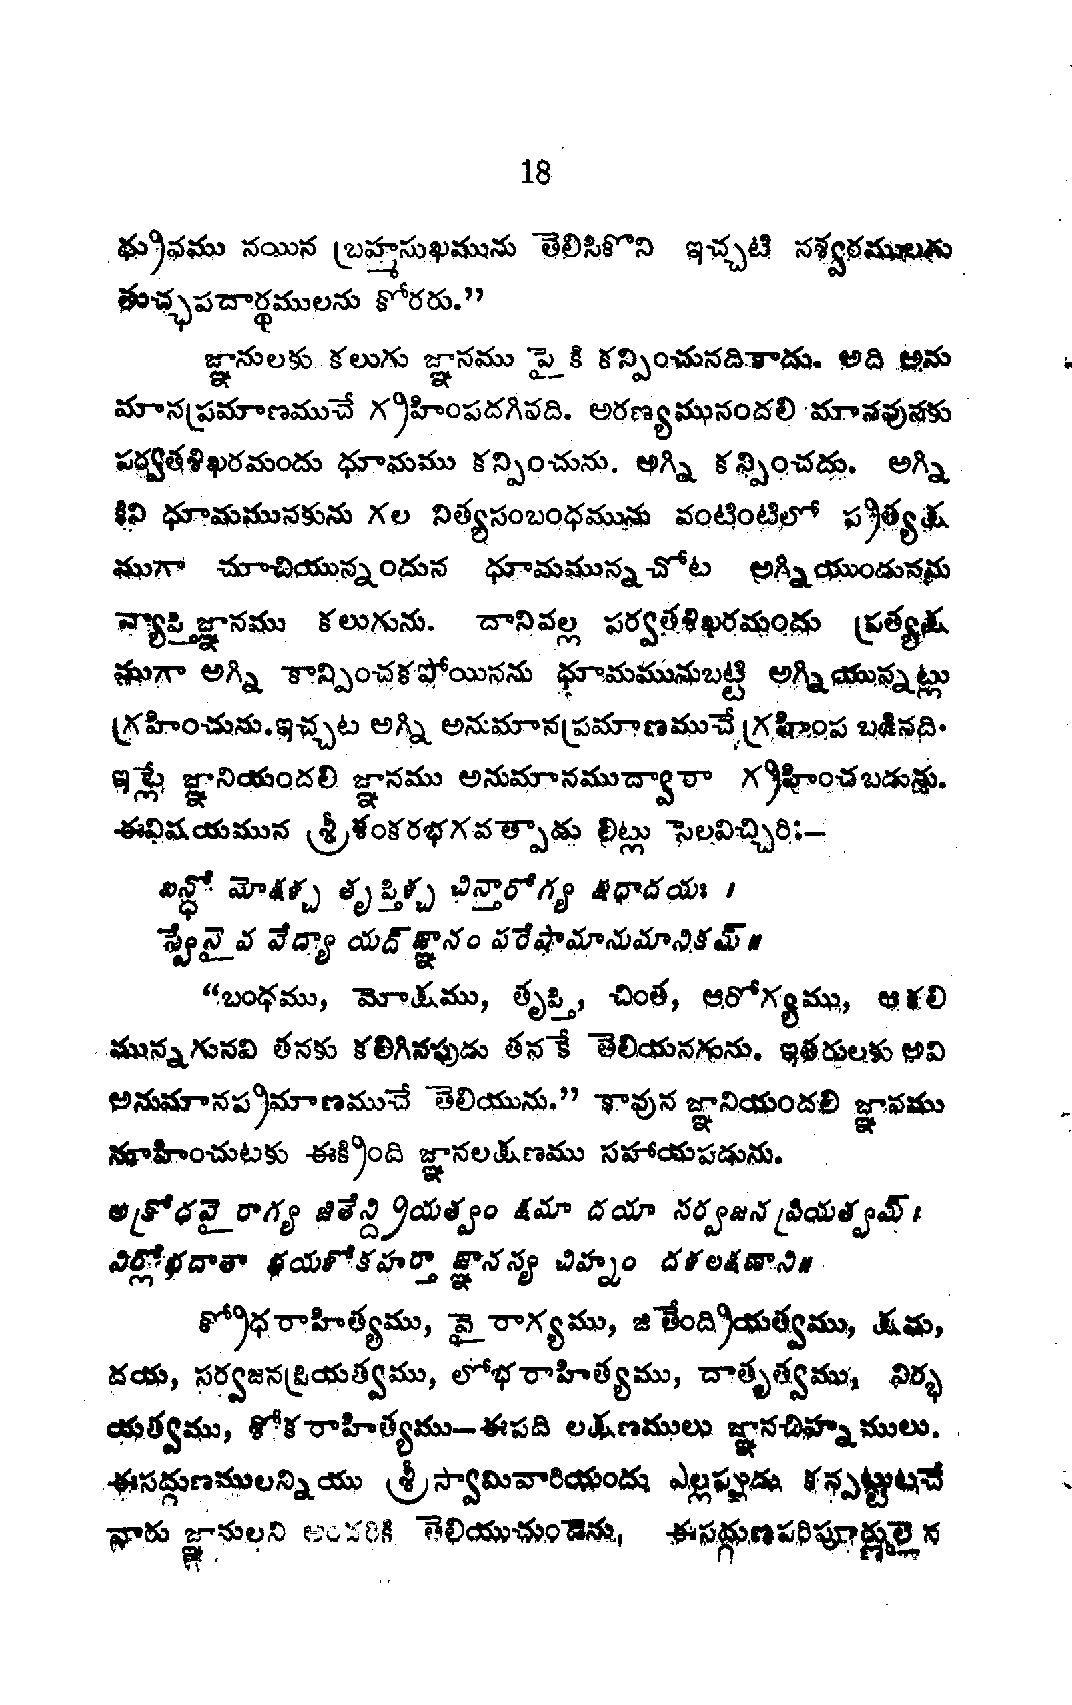 18
ధ్రువము నయిన బ్రహ్మసుఖమును తెలిసికొని ఇచ్చటి నశ్వరములగు
తుచ్ఛపదార్థములను కోరరు."
జ్ఞానులకు కలుగు జ్ఞానము పై కి కన్పించునదికాదు. అది అను
మానప్రమాణముచే గ్రహింపదగినది. అరణ్యమునందలి మానవునకు
పర్వతశిఖరమందు ధూమము కన్పించును. అగ్ని కన్పించదు. అగ్ని
కిని ధూమమునకును గల నిత్యసంబంధమును వంటింటిలో ప్రత్యక్ష
ముగా చూచియున్నందున ధూమమున్నచోట అగ్నియుండునను
వ్యాప్తిజ్ఞానము కలుగును. దానివల్ల పర్వతశిఖరమందు ప్రత్యక్ష
ముగా అగ్ని కాన్పించకపోయినను ధూమమునుబట్టి అగ్నియున్నట్లు
గ్రహించును.ఇచ్చట అగ్ని అనుమానప్రమాణముచే గ్రహింప బడినది.
ఇట్లే జ్ఞానియందలి జ్ఞానము అనుమానముద్వారా గ్రహించబడును.
ఈవిషయమున శ్రీశంకరభగవత్పాదు లిట్లు సెలవిచ్చిరిః—
బన్ధో మోక్షశ్చ తృప్తిశ్చ చిన్తారోగ్య క్షధాదయః ।
స్వేనై వ వేద్యా యద్ జ్ఞానం పరేషామానుమానికమ్॥
"బంధము, మోక్షము, తృప్తి, చింత, ఆరోగ్యము, ఆకలి
మున్నగునవి తనకు కలిగినపుడు తనకే తెలియనగును. ఇతరులకు అవి
అనుమానప్రమాణముచే తెలియును." కావున జ్ఞానియందలి జ్ఞానము
నూహించుటకు ఈక్రింది జ్ఞానలక్షణము సహాయపడును.
అక్రోధవై రాగ్య జితేన్ద్రియత్వం క్షమా దయా సర్వజన ప్రియత్వమ్।
నిర్లోభదాతా భయశోకహర్తా జ్ఞానస్య చిహ్నం దశలక్షణాని॥
క్రోధరాహిత్యము, వై రాగ్యము, జితేంద్రియత్వము, క్షమ,
దయ, సర్వజనప్రియత్వము, లోభరాహిత్యము, దాతృత్వము, నిర్భ
యత్వము, శోకరాహిత్యము—ఈపది లక్షణములు జ్ఞానచిహ్నములు.
ఈసద్గుణములన్నియు శ్రీస్వామివారియందు ఎల్లప్పుడు కన్పట్టుటచే
వారు జ్ఞానులని అందరికి తెలియుచుండెను, ఈసద్గుణపరిపూర్ణులై న